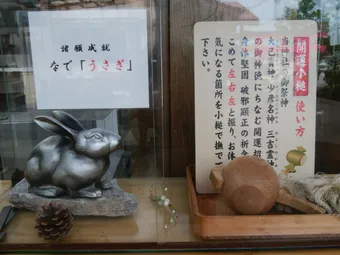 諸願成就
なで「うさぎ」
開運小槌 使い方
当神社の御祭神
大己貴神 少彦名神 三吉霊神
の御神徳にちなむ開運招
身体堅固 破邪顕正の祈念
こめて左右左と振り、お体
気になる箇所を小槌で撫で
下さい。